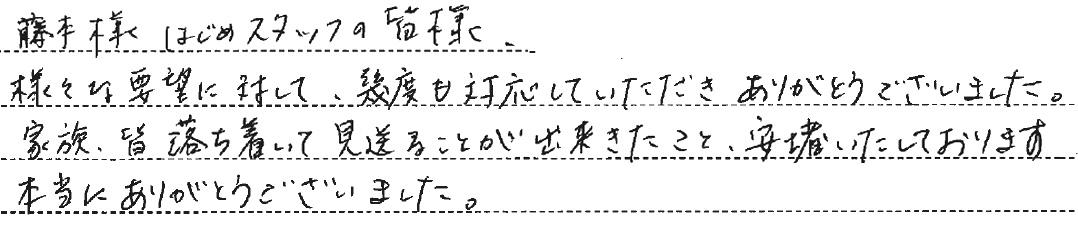 藤本様はじめスタッフの皆様、
様々な要望に対して、幾度も対応していただきありがとうございました。
家族、皆落ち着いて見送ることが出来きたこと、安堵いたしております
本当にありがとうございました。